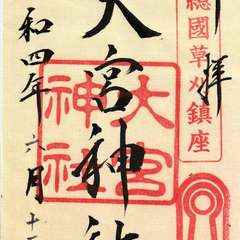 拝
總國草刈鎮座
大宮神社
大宮
神社
和四年六月十